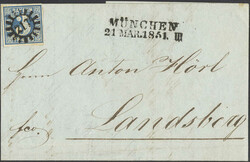 MÜNCHEN
21 MAR. 1851. III
Herrn Anton Hörl
fco.
Landsberg